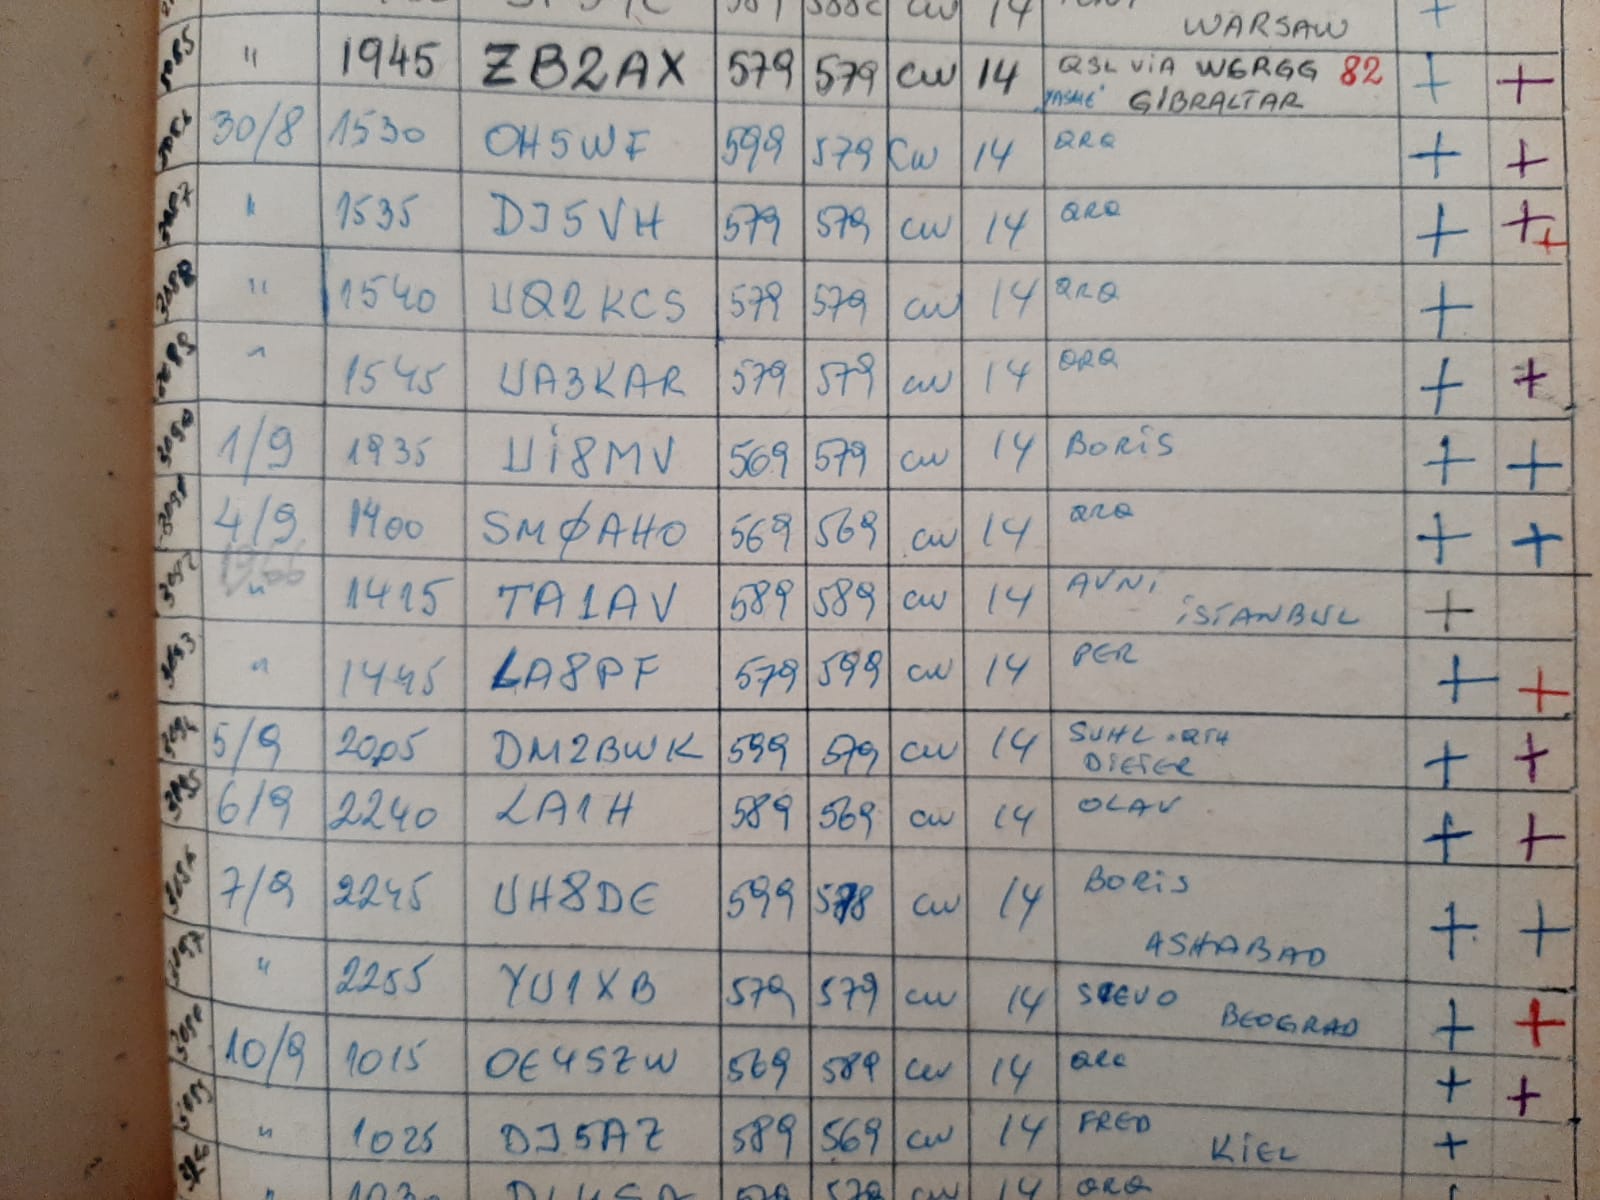 WARSAW
" 1945 ZB2AX 579 579 CW 14 QSL ViA W6RGG 82 + +
GIBRALTAR
30/8 1530 OH5WF 599 579 CW 14 QRQ + +
" 1535 DJ5VH 579 579 CW 14 QRQ + + +
3088 " 1540 UQ2KCS 579 579 CW 14 QRQ +
" 1545 UA3KAR 579 579 CW 14 QRQ + +
3090 1/9 1935 Ui8MV 569 579 CW 14 BORiS + +
3091 4/9 1400 SMØAHO 569 569 CW 14 QRQ + +
1966
3092 " 1415 TA1AV 589 589 CW 14 AVNi +
iSTANBUL
3093 " 1445 LA8PF 579 599 CW 14 PER + +
3094 5/9 2005 DM2BWK 599 579 CW 14 SUHL - QTH + +
DIETER
3095 6/9 2240 LA1H 589 569 CW 14 OLAV + +
7/9 2245 UH8DE 599 578 CW 14 BORiS + +
ASHABAD
3097 " 2255 YU1XB 579 579 CW 14 STEVO + +
BEOGRAD
10/9 1015 OE4SZW 569 589 CW 14 + +
" 1025 DJ5AZ 589 569 CW 14 FRED +
KiEL
579 579 CW 14 QRQ